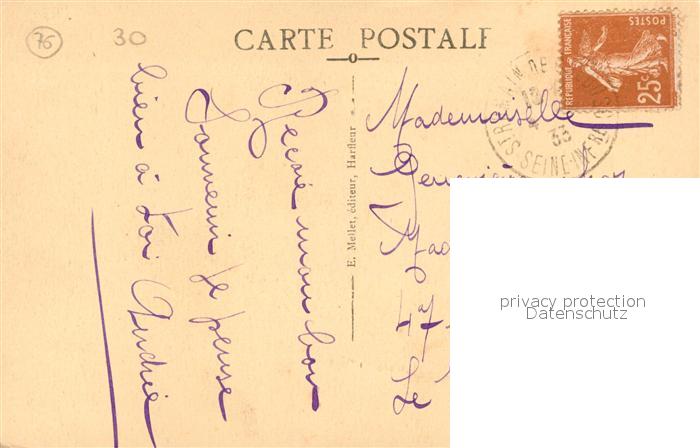 75
30
CARTE POSTALE
POSTES
RÉPUBLIQUE FRANÇAISE
25c
33
SEINE-INFRE
E. Mellet, éditeur, Harfleur
Reçois mon bon
souvenir je pense
bien à toi Andrée
Mademoiselle
47
Le
privacy protection
Datenschutz